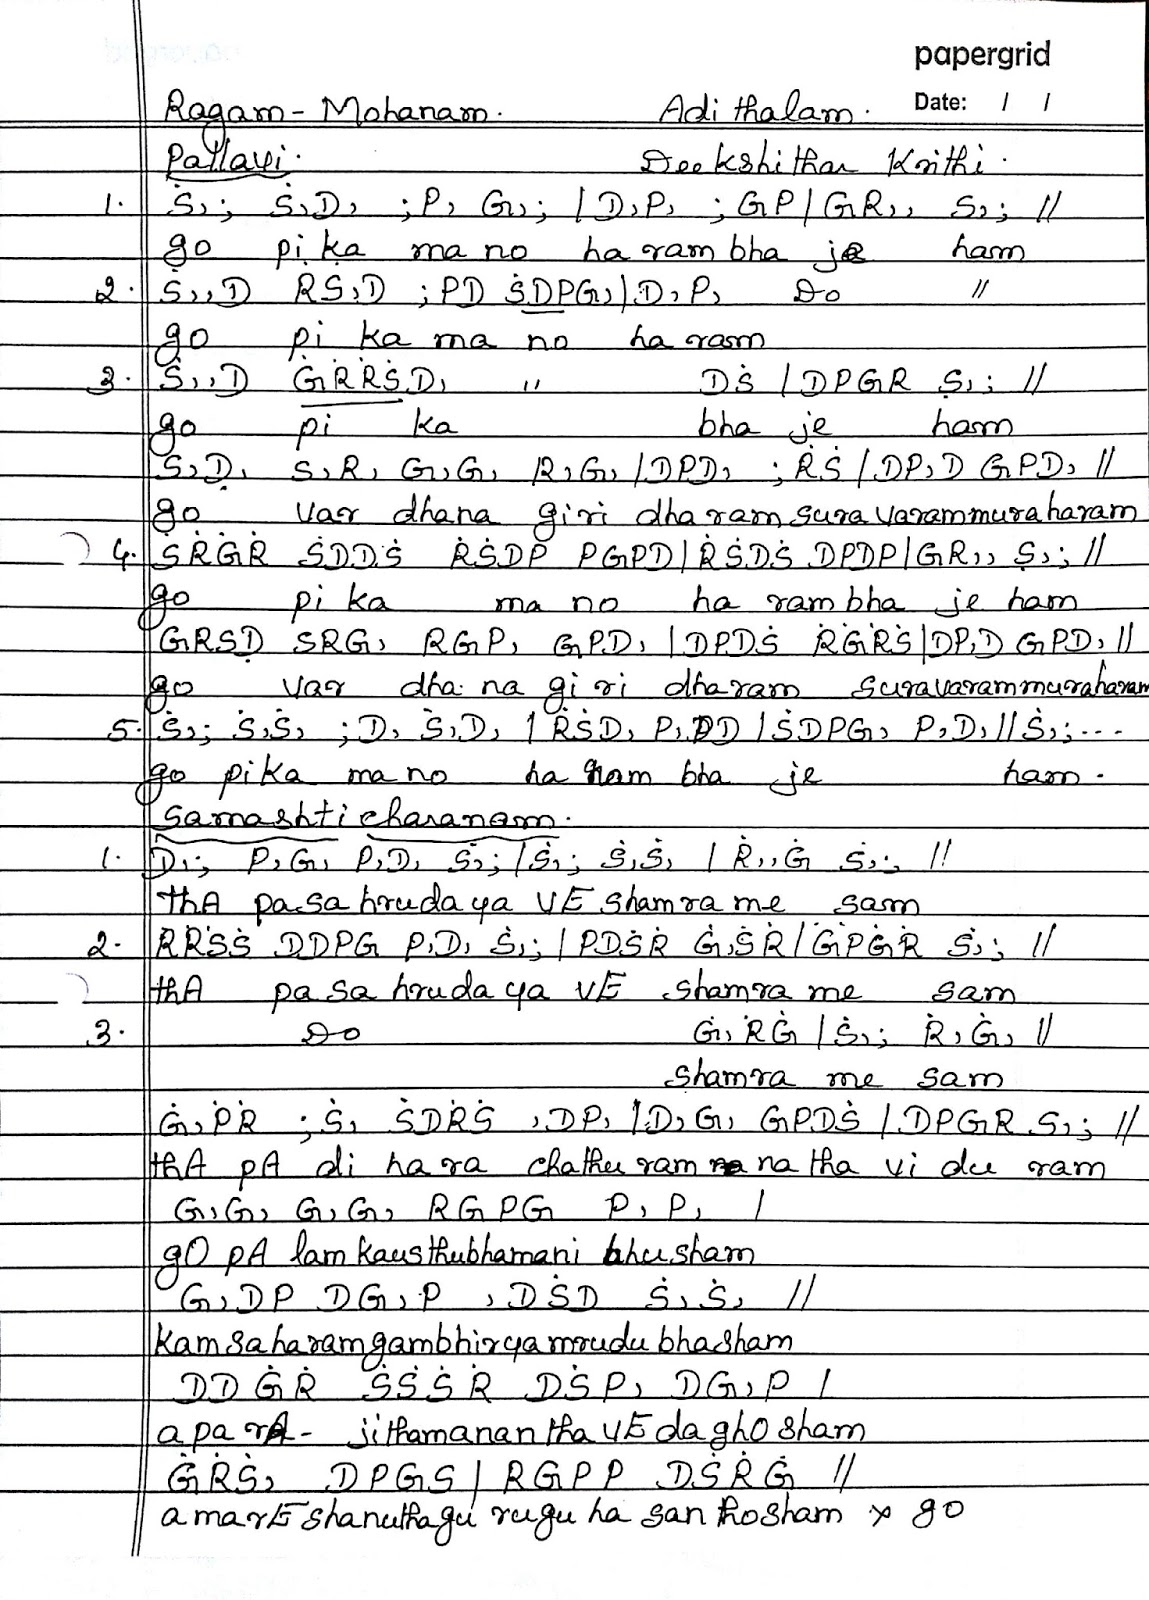 papergrid
Ragam - Mohanam. Adi thalam. Date: / /
Pallavi. Deekshithar Krithi.
1. Ṡ,; Ṡ,D, ;P, G,; | D,P, ;GP | GR,, S,; //
go pi ka ma no ha ram bha je ham
2. Ṡ,,D ṘṠ,D ;PD ṠDPG, | D,P, Do //
go pi ka ma no ha ram
3. Ṡ,,D ĠṘṘṠD, " DṠ | DPGR S,; //
go pi ka bha je ham
S,Ḍ, S,R, G,G, R,G, | DPD, ;ṘṠ | DP,D GPD, //
go var dhana giri dharam suravarammuraharam
4. ṠṘĠṘ ṠDDṠ ṘṠDP PGPD | ṘṠDṠ DPDP | GR,, S,; //
go pi ka ma no ha ram bha je ham
GRSḌ SRG, RGP, GPD, | DPDṠ ṘĠṘṠ | DP,D GPD, //
go var dha na gi ri dharam suravarammuraharam
5. Ṡ,; Ṡ,Ṡ, ;D, Ṡ,D, | ṘṠD, P,DD | ṠDPG, P,D, // Ṡ,;...
go pi ka ma no ha ram bha je ham.
Samashti charanam.
1. D,; P,G, P,D, Ṡ,; | Ṡ,; Ṡ,Ṡ, | Ṙ,,Ġ Ṡ,; //
thA pa sa hrudaya VE shamra me sam
2. ṘṘṠṠ DDPG P,D, Ṡ,; | PDṠṘ Ġ,ṠṘ | ĠṖĠṘ Ṡ,; //
thA pa sa hrudaya VE shamra me sam
3. Do Ġ,ṘĠ | Ṡ,; Ṙ,Ġ, //
shamra me sam
Ġ,ṖṘ ;Ṡ, ṠDṘṠ ,DP, | D,G, GPDṠ | DPGR S,; //
thA pA di ha ra chathu ram na tha vi du ram
G,G, G,G, RGPG P,P, |
gO pA lam kausthubhamani bhusham
G,DP DG,P ,DṠD Ṡ,Ṡ, //
kamsaharamgambhiryamrudu bhasham
DDĠṘ ṠṠṠṘ DṠP, DG,P |
apa rA - jithamanan tha VE da ghO sham
ĠṘṠ, DPGS | RGPP DṠṘĠ //
amarE shanuthagu rugu ha san thosham x go